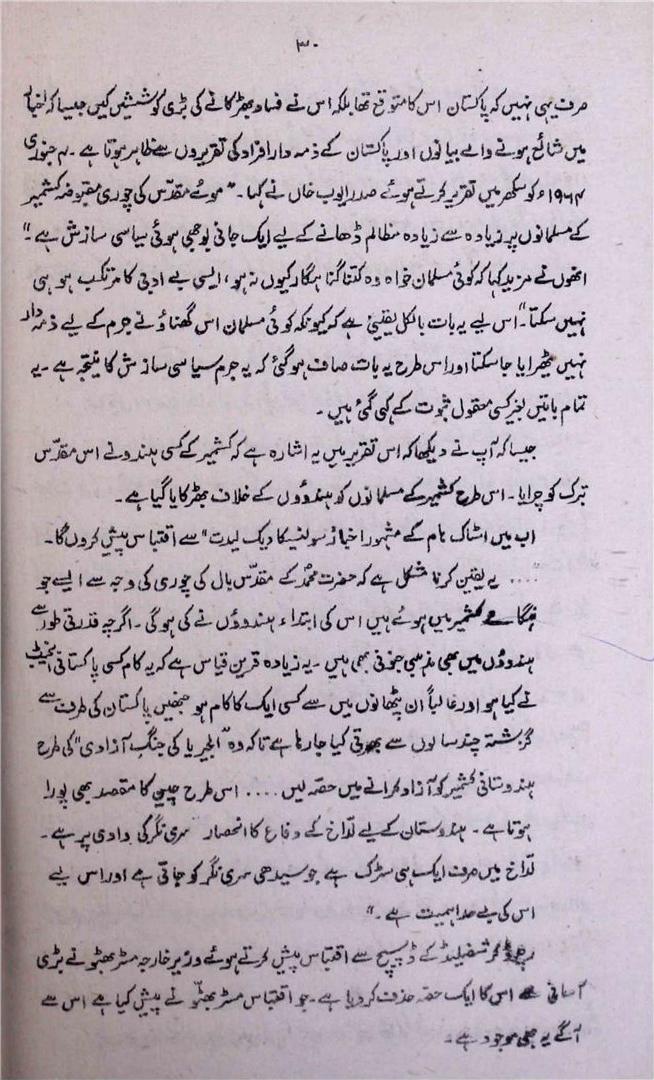 ۳۰
صرف یہی نہیں کہ پاکستان اس کا متوقع تھا بلکہ اس نے فساد بھڑکانے کی بڑی کوششیں کیں جیسا کہ اخبار
میں شائع ہونے والے بیانوں اور پاکستان کے ذمہ دار افراد کی تقریروں سے ظاہر ہوتا ہے ۔ ۳ جنوری
۱۹۶۴ء کو سکھر میں تقریر کرتے ہوئے صدر ایوب خاں نے کہا ۔ "موئے مقدّس کی چوری مقبوضہ کشمیر
کے مسلمانوں پر زیادہ سے زیادہ مظالم ڈھانے کے لیے ایک جانی بوجھی ہوئی سیاسی سازش ہے ۔"
انھوں نے مزید کہا کہ کوئی مسلمان خواہ وہ کتنا گناہگار کیوں نہ ہو، ایسی بے ادبی کا مرتکب ہو ہی
نہیں سکتا" اس لیے یہ بات بالکل یقینی ہے کہ کیونکہ کوئی مسلمان اس گھناؤنے جرم کے لیے ذمہ دار
نہیں ٹھہرایا جا سکتا اور اس طرح یہ بات صاف ہو گئی کہ یہ جرم سیاسی سازش کا نتیجہ ہے ۔ یہ
تمام باتیں بغیر کسی معقول ثبوت کے کہی گئی ہیں ۔
جیسا کہ آپ نے دیکھا کہ اس تقریر میں یہ اشارہ ہے کہ کشمیر کے کسی ہندو نے اس مقدّس
تبرک کو چرایا ۔ اس طرح کشمیر کے مسلمانوں کو ہندوؤں کے خلاف بھڑکایا گیا ہے ۔
اب میں اسٹاک ہام کے مشہور اخبار سونسکا دیگ لیدت" سے اقتباس پیش کروں گا ۔
".... یہ یقین کرنا مشکل ہے کہ حضرت محمدؐ کے مقدّس بال کی چوری کی وجہ سے ایسے جو
ہنگامے کشمیر میں ہوئے ہیں اس کی ابتداء ہندوؤں نے کی ہوگی ۔ اگرچہ قدرتی طور سے
ہندوؤں میں بھی مذہبی جنونی بھی ہیں ۔ یہ زیادہ قرین قیاس ہے کہ یہ کام کسی پاکستانی ایجنٹ
نے کیا ہو اور غالباً ان پٹھانوں میں سے کسی ایک کا کام ہو جنھیں پاکستان کی طرف سے
گزشتہ چند سالوں سے بھرتی کیا جا رہا ہے تاکہ وہ "الجیریا کی جنگِ آزادی" کی طرح
ہندوستانی کشمیر کو آزاد کرانے میں حصّہ لیں .... اس طرح چین کا مقصد بھی پورا
ہوتا ہے ۔ ہندوستان کے لیے لدّاخ کے دفاع کا انحصار سری نگر کی وادی پر ہے ۔
لدّاخ میں صرف ایک ہی سڑک ہے جو سیدھی سری نگر کو جاتی ہے اور اس لیے
اس کی بے حد اہمیت ہے ۔"
کرشفیلڈ کے ڈسپیچ سے اقتباس پیش کرتے ہوئے وزیر خارجہ مسٹر بھٹو نے بڑی
آسانی سے اس کا ایک حصّہ حذف کر دیا ہے ۔ جو اقتباس مسٹر بھٹّو نے پیش کیا ہے اس سے
آگے یہ بھی موجود ہے ۔